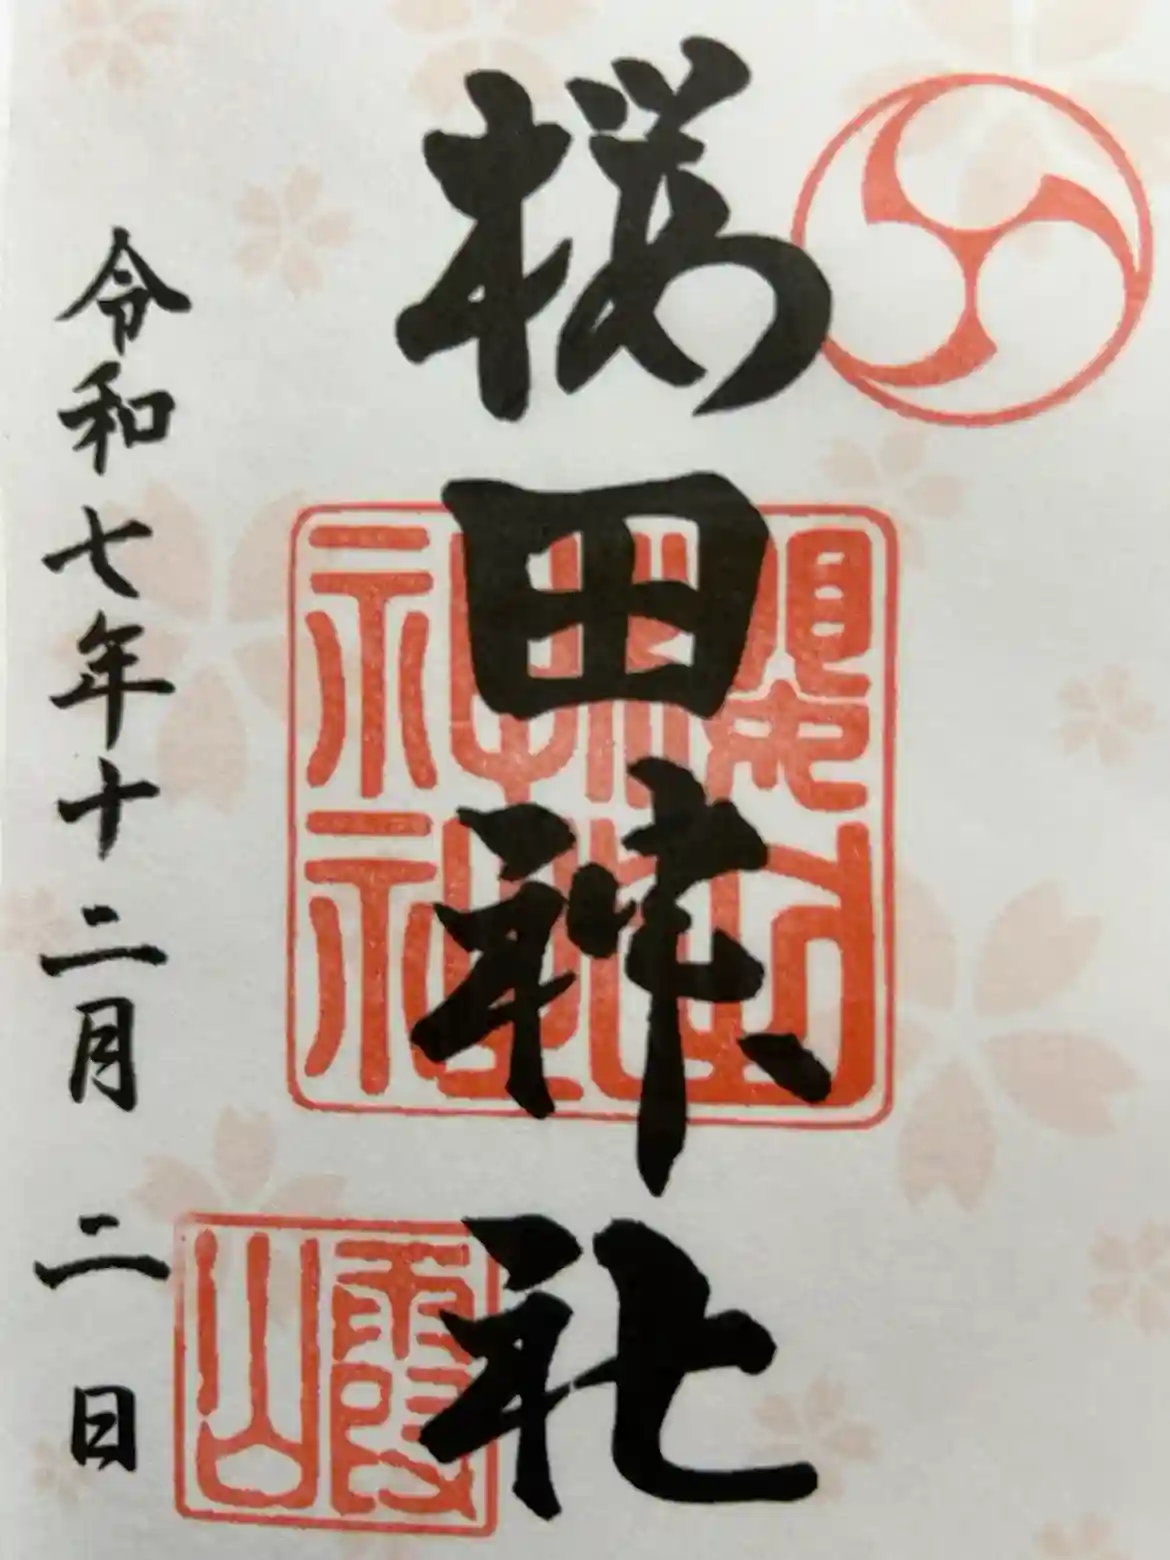 桜田神社
令和七年十二月二日
櫻田神社
霞山